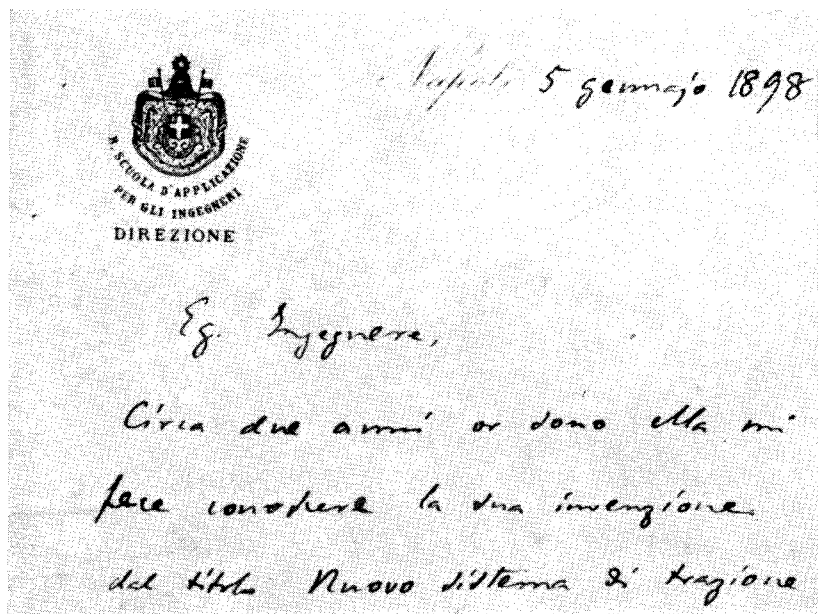 Napoli 5 gennajo 1898
R. SCUOLA D'APPLICAZIONE
PER GLI INGEGNERI
DIREZIONE
Eg. Ingegnere,
Circa due anni or sono ella mi
fece conoscere la sua invenzione
dal titolo Nuovo sistema di trazione